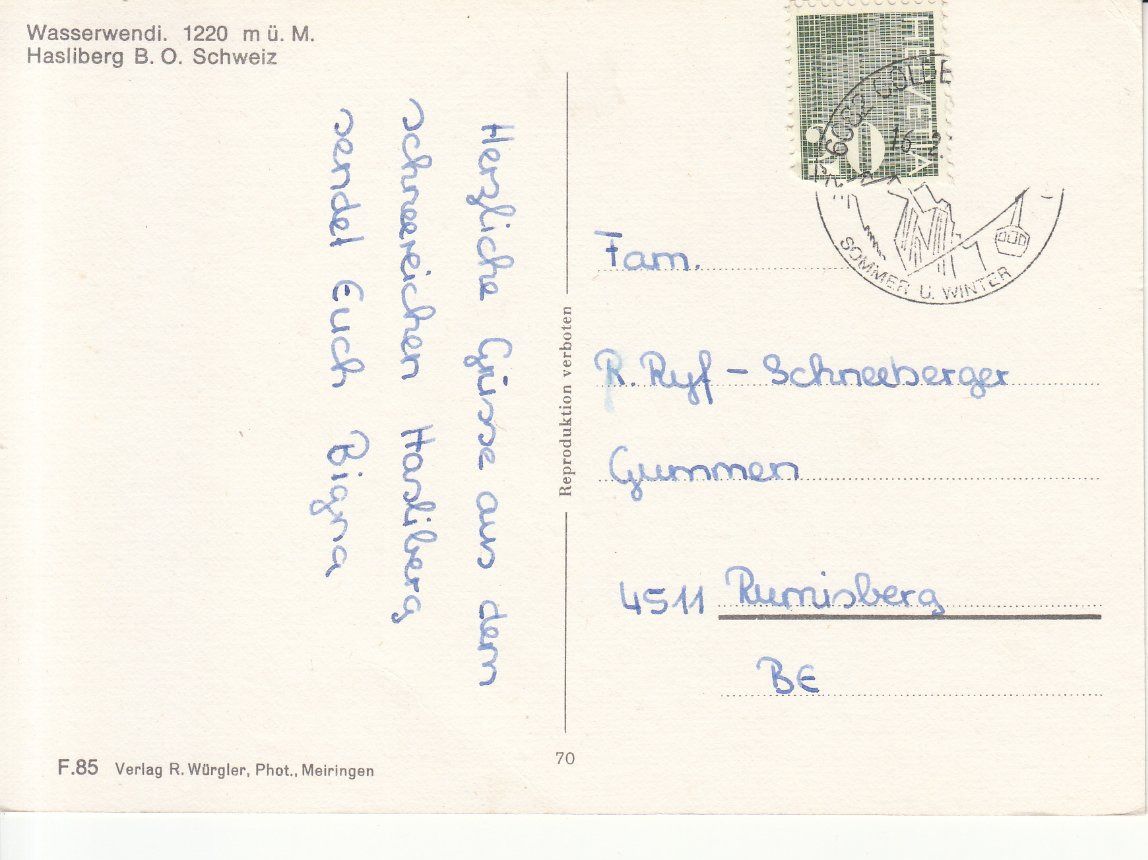 Wasserwendi. 1220 m ü. M.
Hasliberg B. O. Schweiz
Herzliche Grüsse aus dem
schneereichen Hasliberg
sendet Euch Bigna
F.85 Verlag R. Würgler, Phot., Meiringen
Reproduktion verboten
70
HELVETIA
SOMMER U. WINTER
Fam.
R. Ryf - Schneeberger
Gummen
4511 Rumisberg
BE